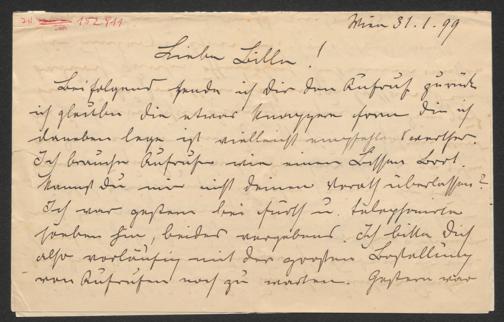 152911
Wien 31.1.99
Liebe Bille!
Beifolgend sende ich Dir den Aufruf zurück
ich glaube die etwas knappere Form die ich
daneben lege ist vielleicht empfehlenswerther.
Ich brauche Aufrufe wie einen Bissen Brot.
Kannst Du mir nicht deinen Vorath überlassen?
Ich war gestern bei Fürth u. telephonirte
soeben hin, beides vergebens. Ich bitte Dich
also vorläufig mit der großen Bestellung
von Aufrufen noch zu warten. Gestern war